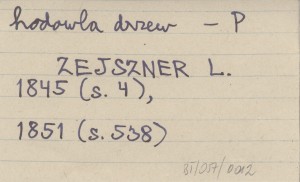 hodowla drzew - P
ZEJSZNER L.
1845 (s. 4),
1851 (s. 538)